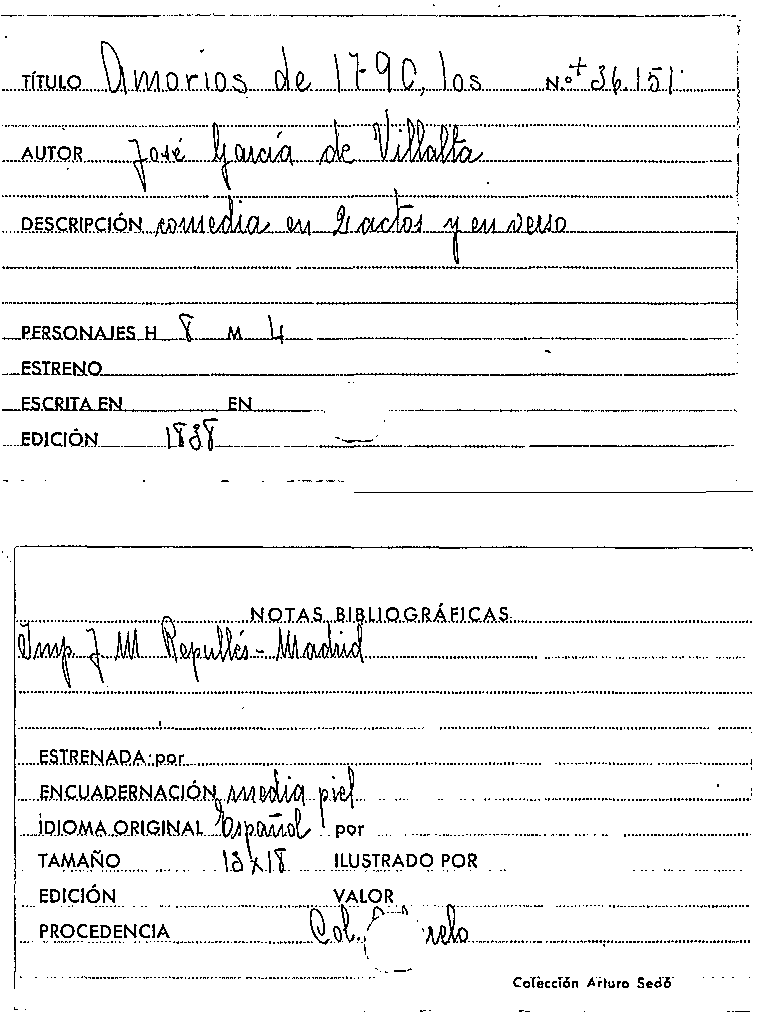 TÍTULO Amorios de 1790, los N.º + 36.151
AUTOR José García de Villalta
DESCRIPCIÓN comedia en 2 actos y en verso
PERSONAJES H 8 M 4
ESTRENO
ESCRITA EN EN
EDICIÓN 1838
NOTAS BIBLIOGRÁFICAS
Imp J M Repullés - Madrid
ESTRENADA por
ENCUADERNACIÓN media piel
IDIOMA ORIGINAL Español por
TAMAÑO 13x18 ILUSTRADO POR
EDICIÓN VALOR
PROCEDENCIA Col.
Colección Arturo Sedó